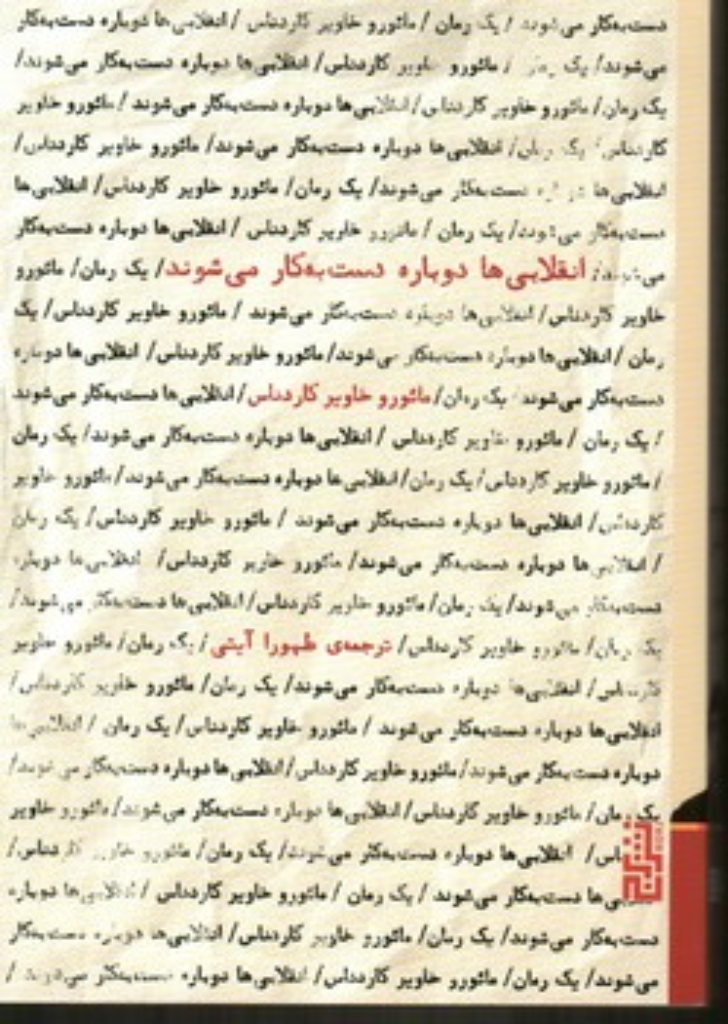 دست‌به‌کار می‌شوند / یک رمان / مائورو خاویر کاردناس / انقلابی‌ها دوباره دست‌به‌کار
می‌شوند/ یک رمان / مائورو خاویر کاردناس/ انقلابی‌ها دوباره دست‌به‌کار می‌شوند/
یک رمان/ مائورو خاویر کاردناس/ انقلابی‌ها دوباره دست‌به‌کار می‌شوند / مائورو خاویر
کاردناس/ یک رمان/ انقلابی‌ها دوباره دست‌به‌کار می‌شوند/ مائورو خاویر کاردناس/
انقلابی‌ها دوباره دست‌به‌کار می‌شوند/ یک رمان/ مائورو خاویر کاردناس/ انقلابی‌ها
دست‌به‌کار می‌شوند/ یک رمان / مائورو خاویر کاردناس / انقلابی‌ها دوباره دست‌به‌کار
می‌شوند/ انقلابی‌ها دوباره دست‌به‌کار می‌شوند/ یک رمان/ مائورو
خاویر کاردناس/ انقلابی‌ها دوباره دست‌به‌کار می‌شوند / مائورو خاویر کاردناس/ یک
رمان / انقلابی‌ها دوباره دست‌به‌کار می‌شوند/ مائورو خاویر کاردناس/ انقلابی‌ها دوباره
دست‌به‌کار می‌شوند/ یک رمان/ مائورو خاویر کاردناس/ انقلابی‌ها دست‌به‌کار می‌شوند
/ یک رمان / مائورو خاویر کاردناس / انقلابی‌ها دوباره دست‌به‌کار می‌شوند/ یک رمان
/ مائورو خاویر کاردناس/ یک رمان/ انقلابی‌ها دوباره دست‌به‌کار می‌شوند/ مائورو خاویر
کاردناس/ انقلابی‌ها دوباره دست‌به‌کار می‌شوند / مائورو خاویر کاردناس/ یک رمان
/ انقلابی‌ها دوباره دست‌به‌کار می‌شوند/ مائورو خاویر کاردناس/ انقلابی‌ها دوباره
دست‌به‌کار می‌شوند/ یک رمان/ مائورو خاویر کاردناس/ انقلابی‌ها دست‌به‌کار می‌شوند/
یک رمان/ مائورو خاویر کاردناس/ ترجمه‌ی طهورا آیتی/ یک رمان/ مائورو خاویر
کاردناس/ انقلابی‌ها دوباره دست‌به‌کار می‌شوند/ یک رمان/ مائورو خاویر کاردناس/
انقلابی‌ها دوباره دست‌به‌کار می‌شوند / مائورو خاویر کاردناس/ یک رمان / انقلابی‌ها
دوباره دست‌به‌کار می‌شوند/ مائورو خاویر کاردناس/ انقلابی‌ها دوباره دست‌به‌کار می‌شوند/
یک رمان/ مائورو خاویر کاردناس/ انقلابی‌ها دوباره دست‌به‌کار می‌شوند/ مائورو خاویر
/ انقلابی‌ها دوباره دست‌به‌کار می‌شوند/ یک رمان/ مائورو خاویر کاردناس/
دست‌به‌کار می‌شوند / یک رمان / مائورو خاویر کاردناس / انقلابی‌ها دوباره
دست‌به‌کار می‌شوند/ یک رمان/ مائورو خاویر کاردناس/ انقلابی‌ها دوباره دست‌به‌کار
می‌شوند/ یک رمان/ مائورو خاویر کاردناس/ انقلابی‌ها دوباره دست‌به‌کار می‌شوند /